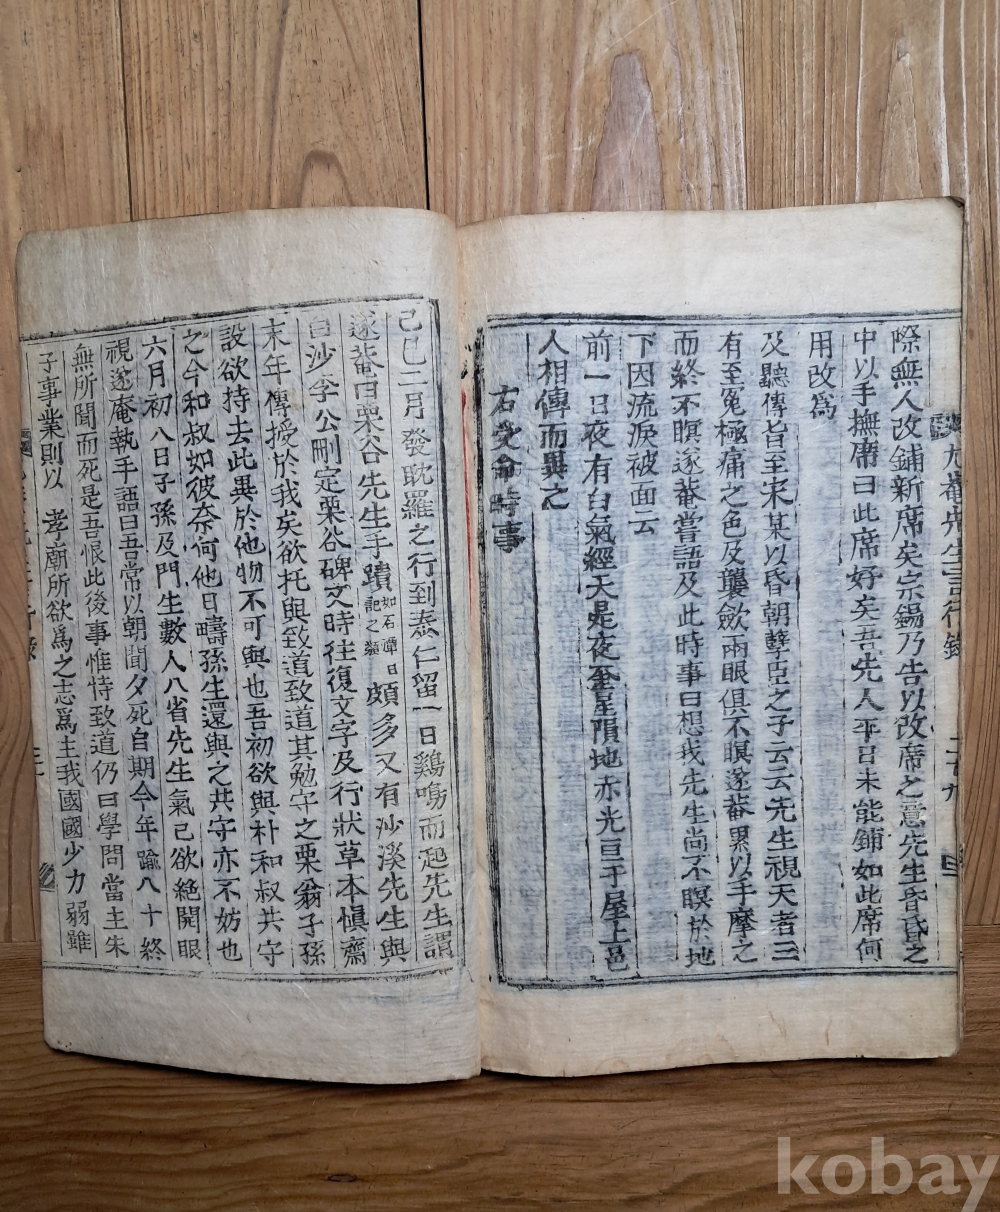 尤菴先生言行錄
二十九
際無人改鋪新席矣宗錫乃告以改席之意先生昏昏之
中以手撫席曰此席好矣吾先人平日未能鋪如此席何
用改爲
及聽傳旨至宋某以昏朝孼臣之子云云先生視天者三
有至冤極痛之色及襲歛兩眼俱不瞑遂菴累以手摩之
而終不瞑遂菴嘗語及此時事曰想我先生尚不瞑於地
下因流淚被面云
前一日夜有白氣經天是夜奎星隕地赤光亘于屋上邑
人相傳而異之
右受命時事
己巳二月發耽羅之行到泰仁留一日鷄鳴而起先生謂
遂菴曰栗谷先生手蹟如石潭日記之類頗多又有沙溪先生與
白沙李公刪定栗谷碑文時往復文字及行狀草本愼齋
末年傳授於我矣欲托與致道致道其勉守之栗翁子孫
設欲持去此異於他物不可與也吾初欲與朴和叔共守
之今和叔如彼奈何他日疇孫生還與之共守亦不妨也
六月初八日子孫及門生數人入省先生氣已欲絶開眼
視遂庵執手語曰吾常以朝聞夕死自期今年踰八十終
無所聞而死是吾恨此後事惟恃致道仍曰學問當主朱
子事業則以 孝廟所欲爲之志爲主我國國少力弱雖
kobay